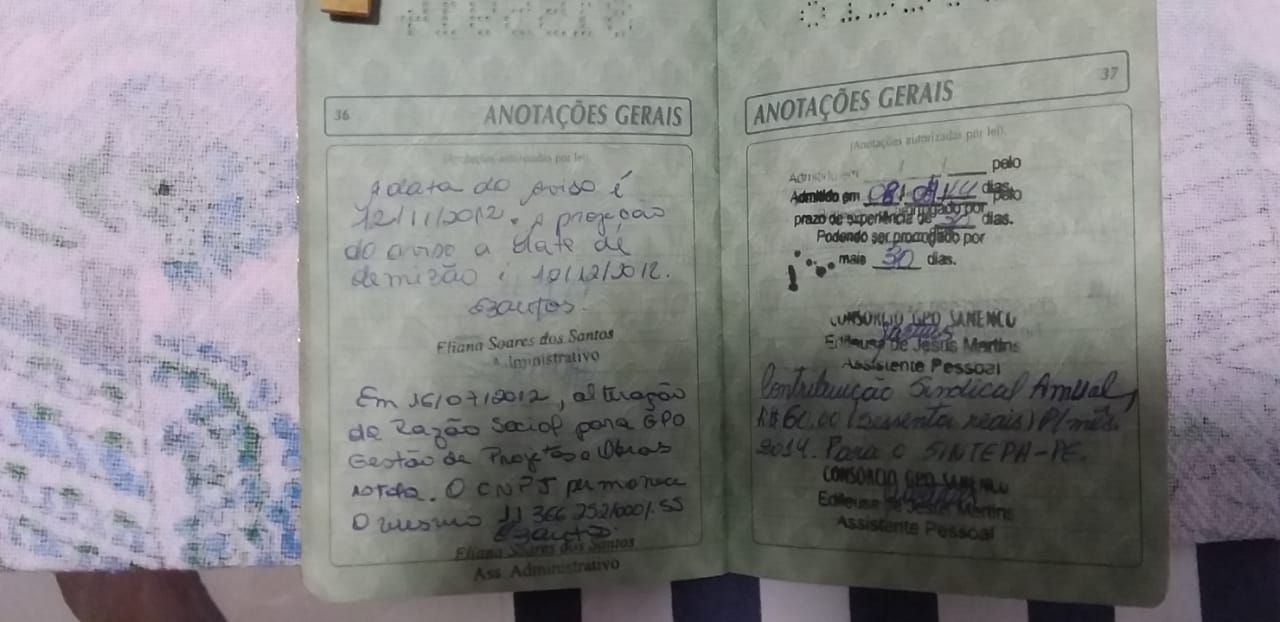 36
ANOTAÇÕES GERAIS
(Anotações autorizadas por lei)
A data do aviso é
12/11/2012. A projeção
do aviso a date de
demizão 12/12/2012.
Esantos
Eliana Soares dos Santos
Administrativo
Em 16/07/2012, alteração
de Razão Social para GPO
Gestão de Projetos e Obras
O CNPJ permanece
O mesmo 11 366 252/0001.55
Esantos
Eliana Soares dos Santos
Ass. Administrativo
37
ANOTAÇÕES GERAIS
(Anotações autorizadas por lei).
Admitido em / / pelo
Admitido em 08 dias pelo
prazo de experiência de dias.
Podendo ser prorrogado por
mais 30 dias.
CONSORCIO GPO
Edileusa de Jesus Martins
Assistente Pessoal
Contribuição Sindical Anual,
R$ 60,00 (sessenta reais) P/ mês
2014. Para o SINTEPA-PE.
CONSORCIO GPO
Edileusa de Jesus Martins
Assistente Pessoal